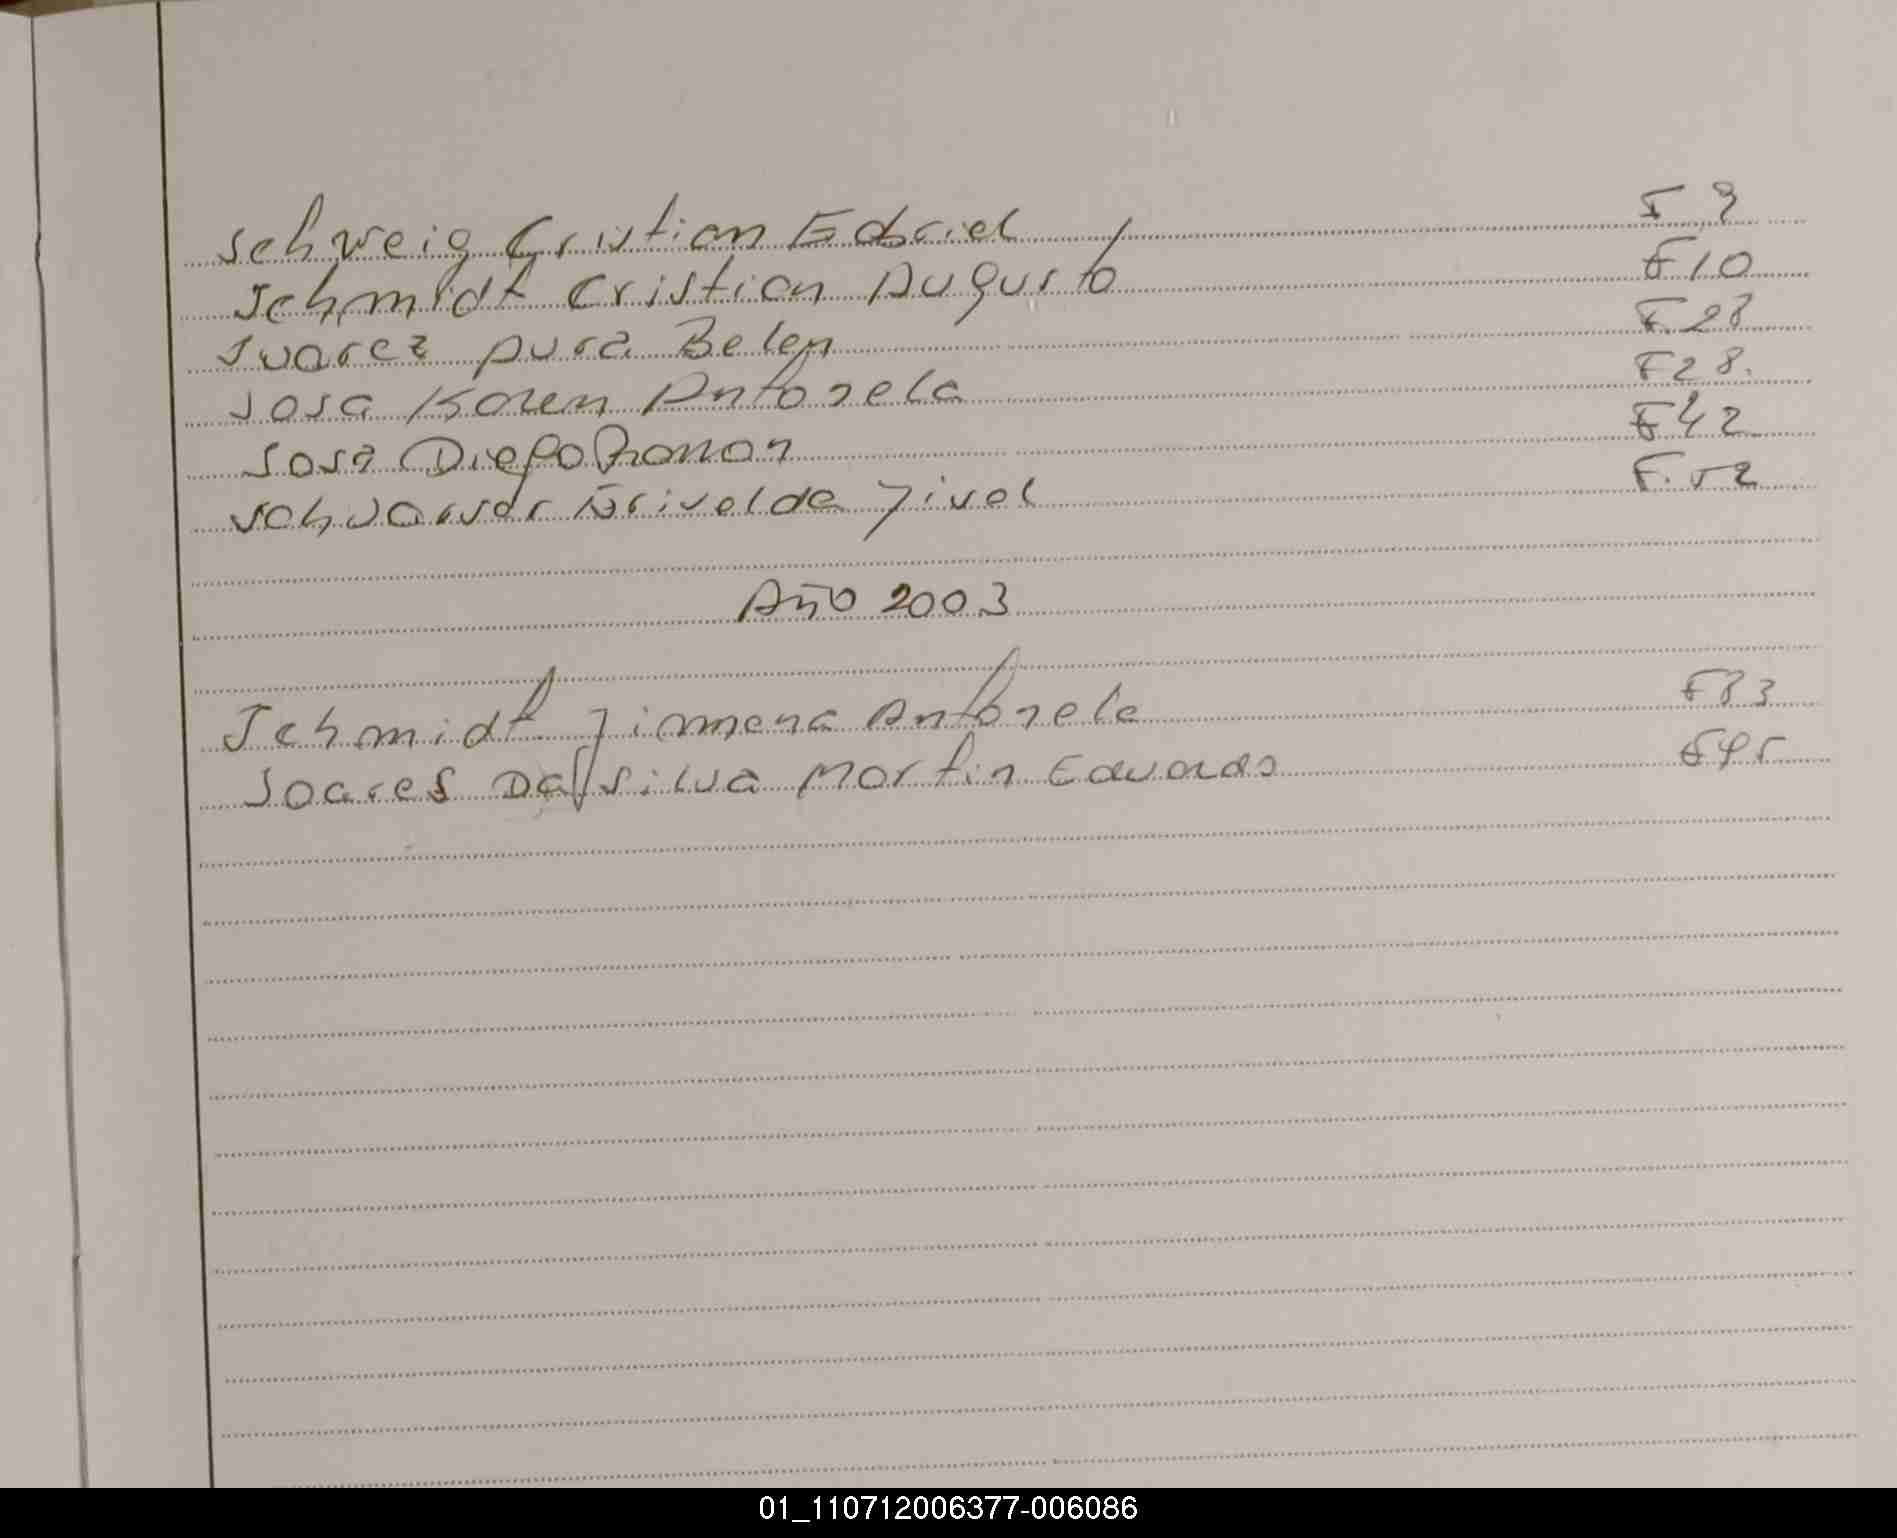 Schweig Cristian Gabriel F 9
Schmidt Cristian Augusto F 10
Suarez Aura Belen F. 28
Sosa Karen Antonela F 28.
Sosa Diego Ramon F 42
Erivelda Jisel F. 52
Año 2003
Schmidt Jimena Antonela F 83
Soares Da Silva Martin Eduardo F 95
01_110712006377-006086